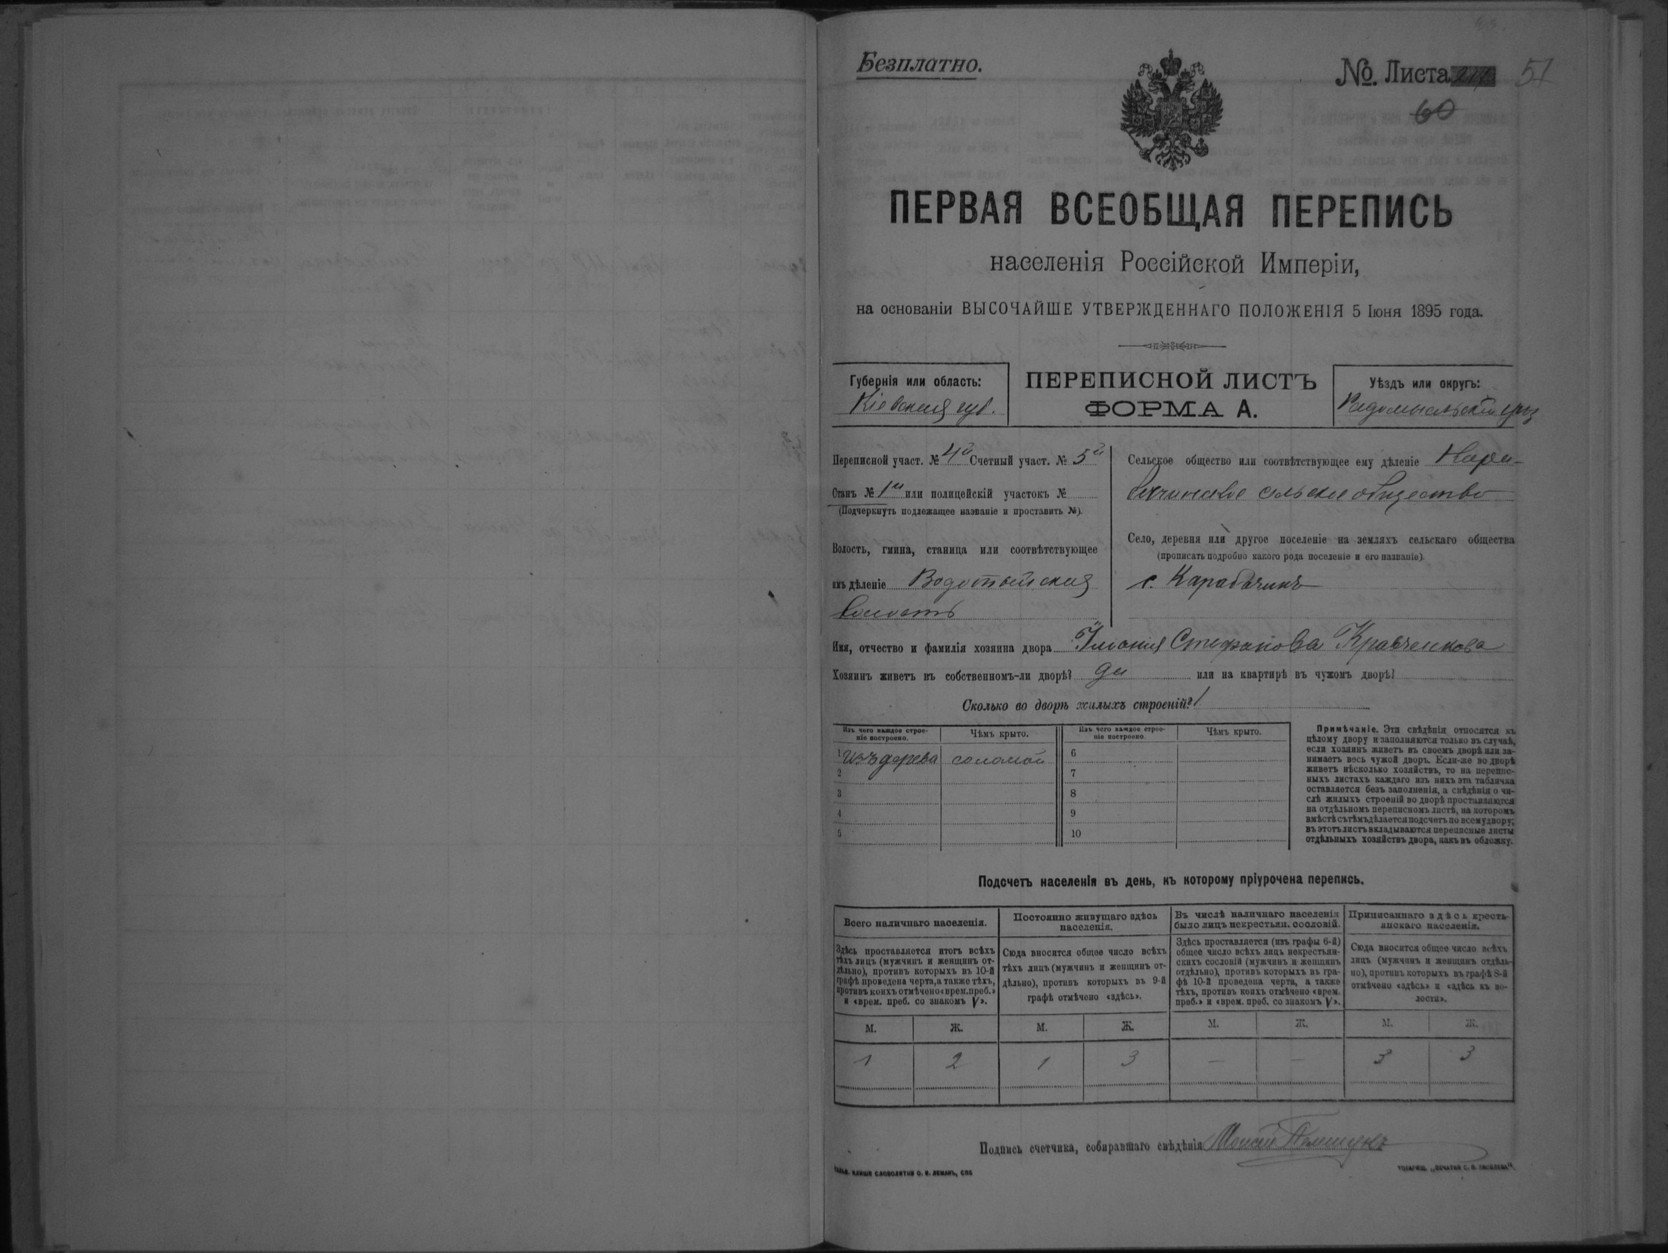 Безплатно.
№. Листа 51
60
ПЕРВАЯ ВСЕОБЩАЯ ПЕРЕПИСЬ
населенія Россійской Имперіи,
на основаніи ВЫСОЧАЙШЕ УТВЕРЖДЕННАГО ПОЛОЖЕНІЯ 5 Іюня 1895 года.
Губернія или область:
Кіевская губ.
ПЕРЕПИСНОЙ ЛИСТЪ
ФОРМА А.
Уѣздъ или округъ:
Радомысльскій
Переписной участ. № 4й Счетный участ. № 5й
Станъ № 1й или полицейскій участокъ №
(Подчеркнуть подлежащее названіе и проставить №).
Волость, гмина, станица или соотвѣтствующее
имъ дѣленіе Водотыйская
волость
Сельское общество или соотвѣтствующее ему дѣленіе
сельское общество
Село, деревня или другое поселеніе на земляхъ сельскаго общества
(прописать подробно какого рода поселеніе и его названіе)
с. Карабачинъ
Имя, отчество и фамилія хозяина двора Стефанова Кравченкова
Хозяинъ живетъ въ собственномъ-ли дворѣ? да или на квартирѣ въ чужомъ дворѣ?
Сколько во дворѣ жилыхъ строеній? 1
Изъ чего каждое строеніе построено.
Чѣмъ крыто.
Изъ чего каждое строеніе построено.
Чѣмъ крыто.
1 изъ дерева соломой
2
3
4
5
6
7
8
9
10
Примѣчаніе. Эти свѣдѣнія относятся къ
цѣлому двору и заполняются только въ случаѣ,
если хозяинъ живетъ въ своемъ дворѣ или за-
нимаетъ весь чужой дворъ. Если-же во дворѣ
живетъ нѣсколько хозяйствъ, то на перепис-
ныхъ листахъ каждаго изъ нихъ эта табличка
оставляется безъ заполненія, а свѣдѣнія о чи-
слѣ жилыхъ строеній во дворѣ проставляются
на отдѣльномъ переписномъ листѣ, на которомъ
вмѣстѣ съ тѣмъ дѣлается подсчетъ по всему двору;
въ этотъ листъ вкладываются переписные листы
отдѣльныхъ хозяйствъ двора, какъ въ обложку.
Подсчетъ населенія въ день, къ которому пріурочена перепись.
Всего наличнаго населенія.
Здѣсь проставляется итогъ всѣхъ
тѣхъ лицъ (мужчинъ и женщинъ от-
дѣльно), противъ которыхъ въ 10-й
графѣ проведена черта, а также тѣхъ,
противъ коихъ отмѣчено «врем. преб.»
и «врем. преб. со знакомъ V».
Постоянно живущаго здѣсь
населенія.
Сюда вносится общее число всѣхъ
тѣхъ лицъ (мужчинъ и женщинъ от-
дѣльно), противъ которыхъ въ 9-й
графѣ отмѣчено «здѣсь».
Въ числѣ наличнаго населенія
было лицъ некрестьян. сословій.
Здѣсь проставляется (изъ графы 6-й)
общее число всѣхъ лицъ некрестьян-
скихъ сословій (мужчинъ и женщинъ
отдѣльно), противъ которыхъ въ гра-
фѣ 10-й проведена черта, а также
тѣхъ, противъ коихъ отмѣчено «врем.
преб.» и «врем. преб. со знакомъ V».
Приписаннаго здѣсь кресть-
янскаго населенія.
Сюда вносится общее число всѣхъ
лицъ (мужчинъ и женщинъ отдѣль-
но), противъ которыхъ въ графѣ 8-й
отмѣчено «здѣсь» и «здѣсь въ во-
лости».
М. Ж. М. Ж. М. Ж. М. Ж.
1 2 1 3 — — 3 3
Подпись счетчика, собиравшаго свѣдѣнія